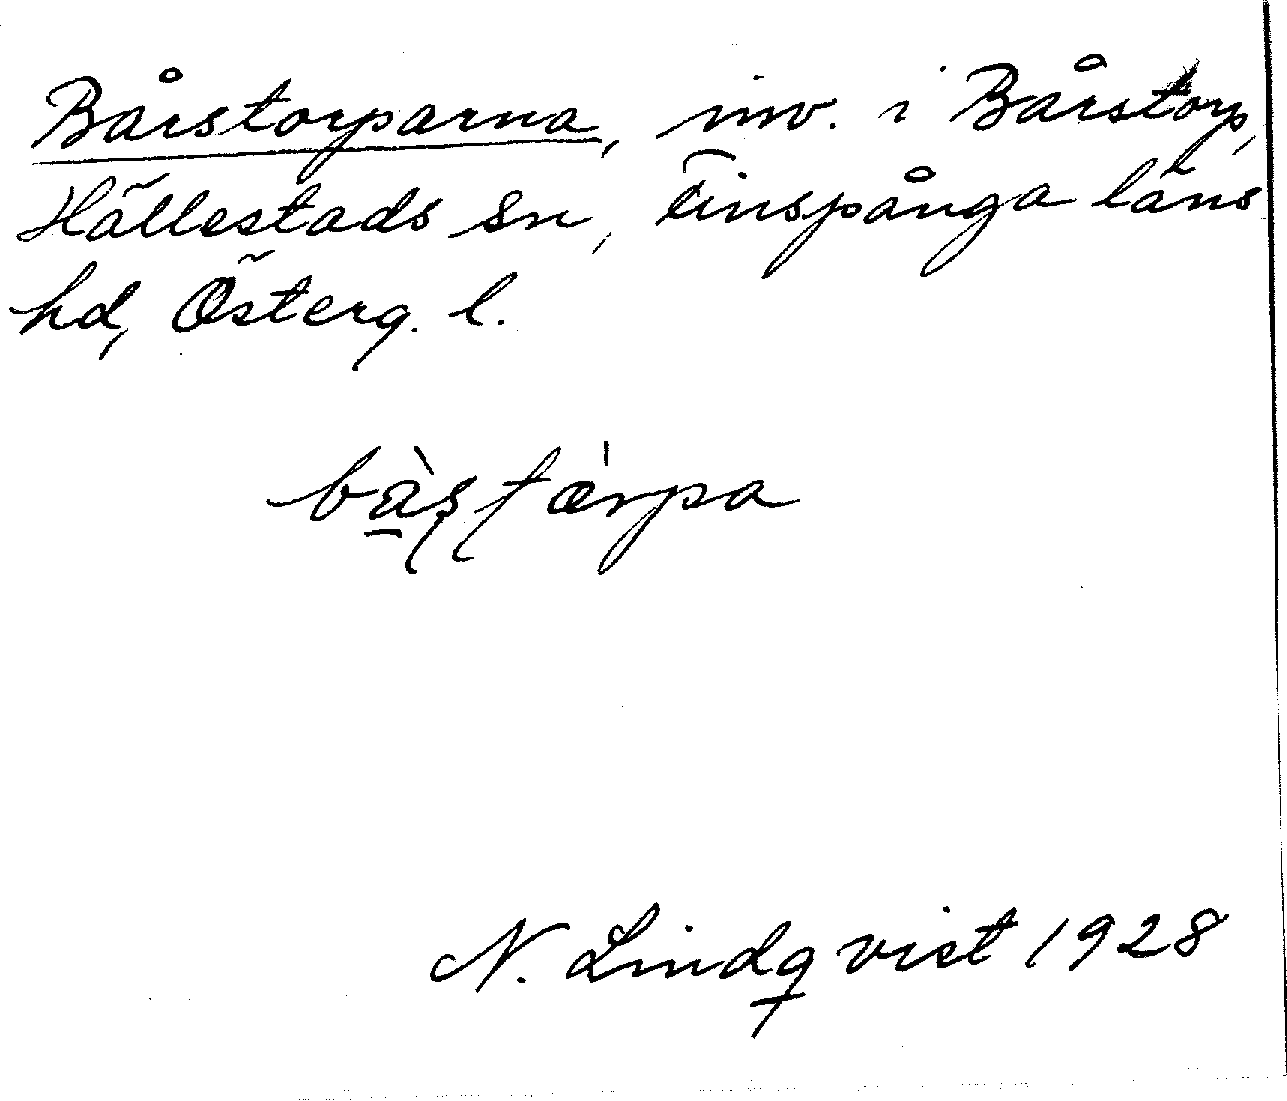 Bårstorparna, inv. i Bårstorp,
Hällestads sn, Finspånga läns
hd, Österg. l.
N. Lindqvist 1928